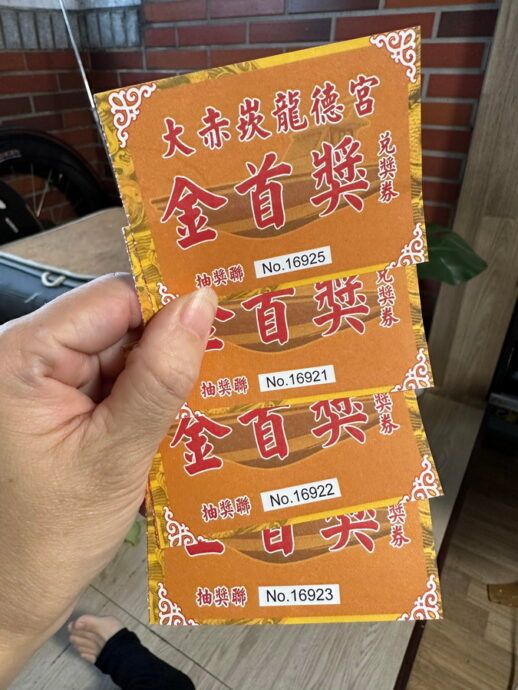 大赤崁龍德宮
金首獎
兌獎券
抽獎聯 No.16925
金首獎
兌獎券
抽獎聯 No.16921
金首獎
獎券
抽獎聯 No.16922
首獎
獎券
抽獎聯 No.16923